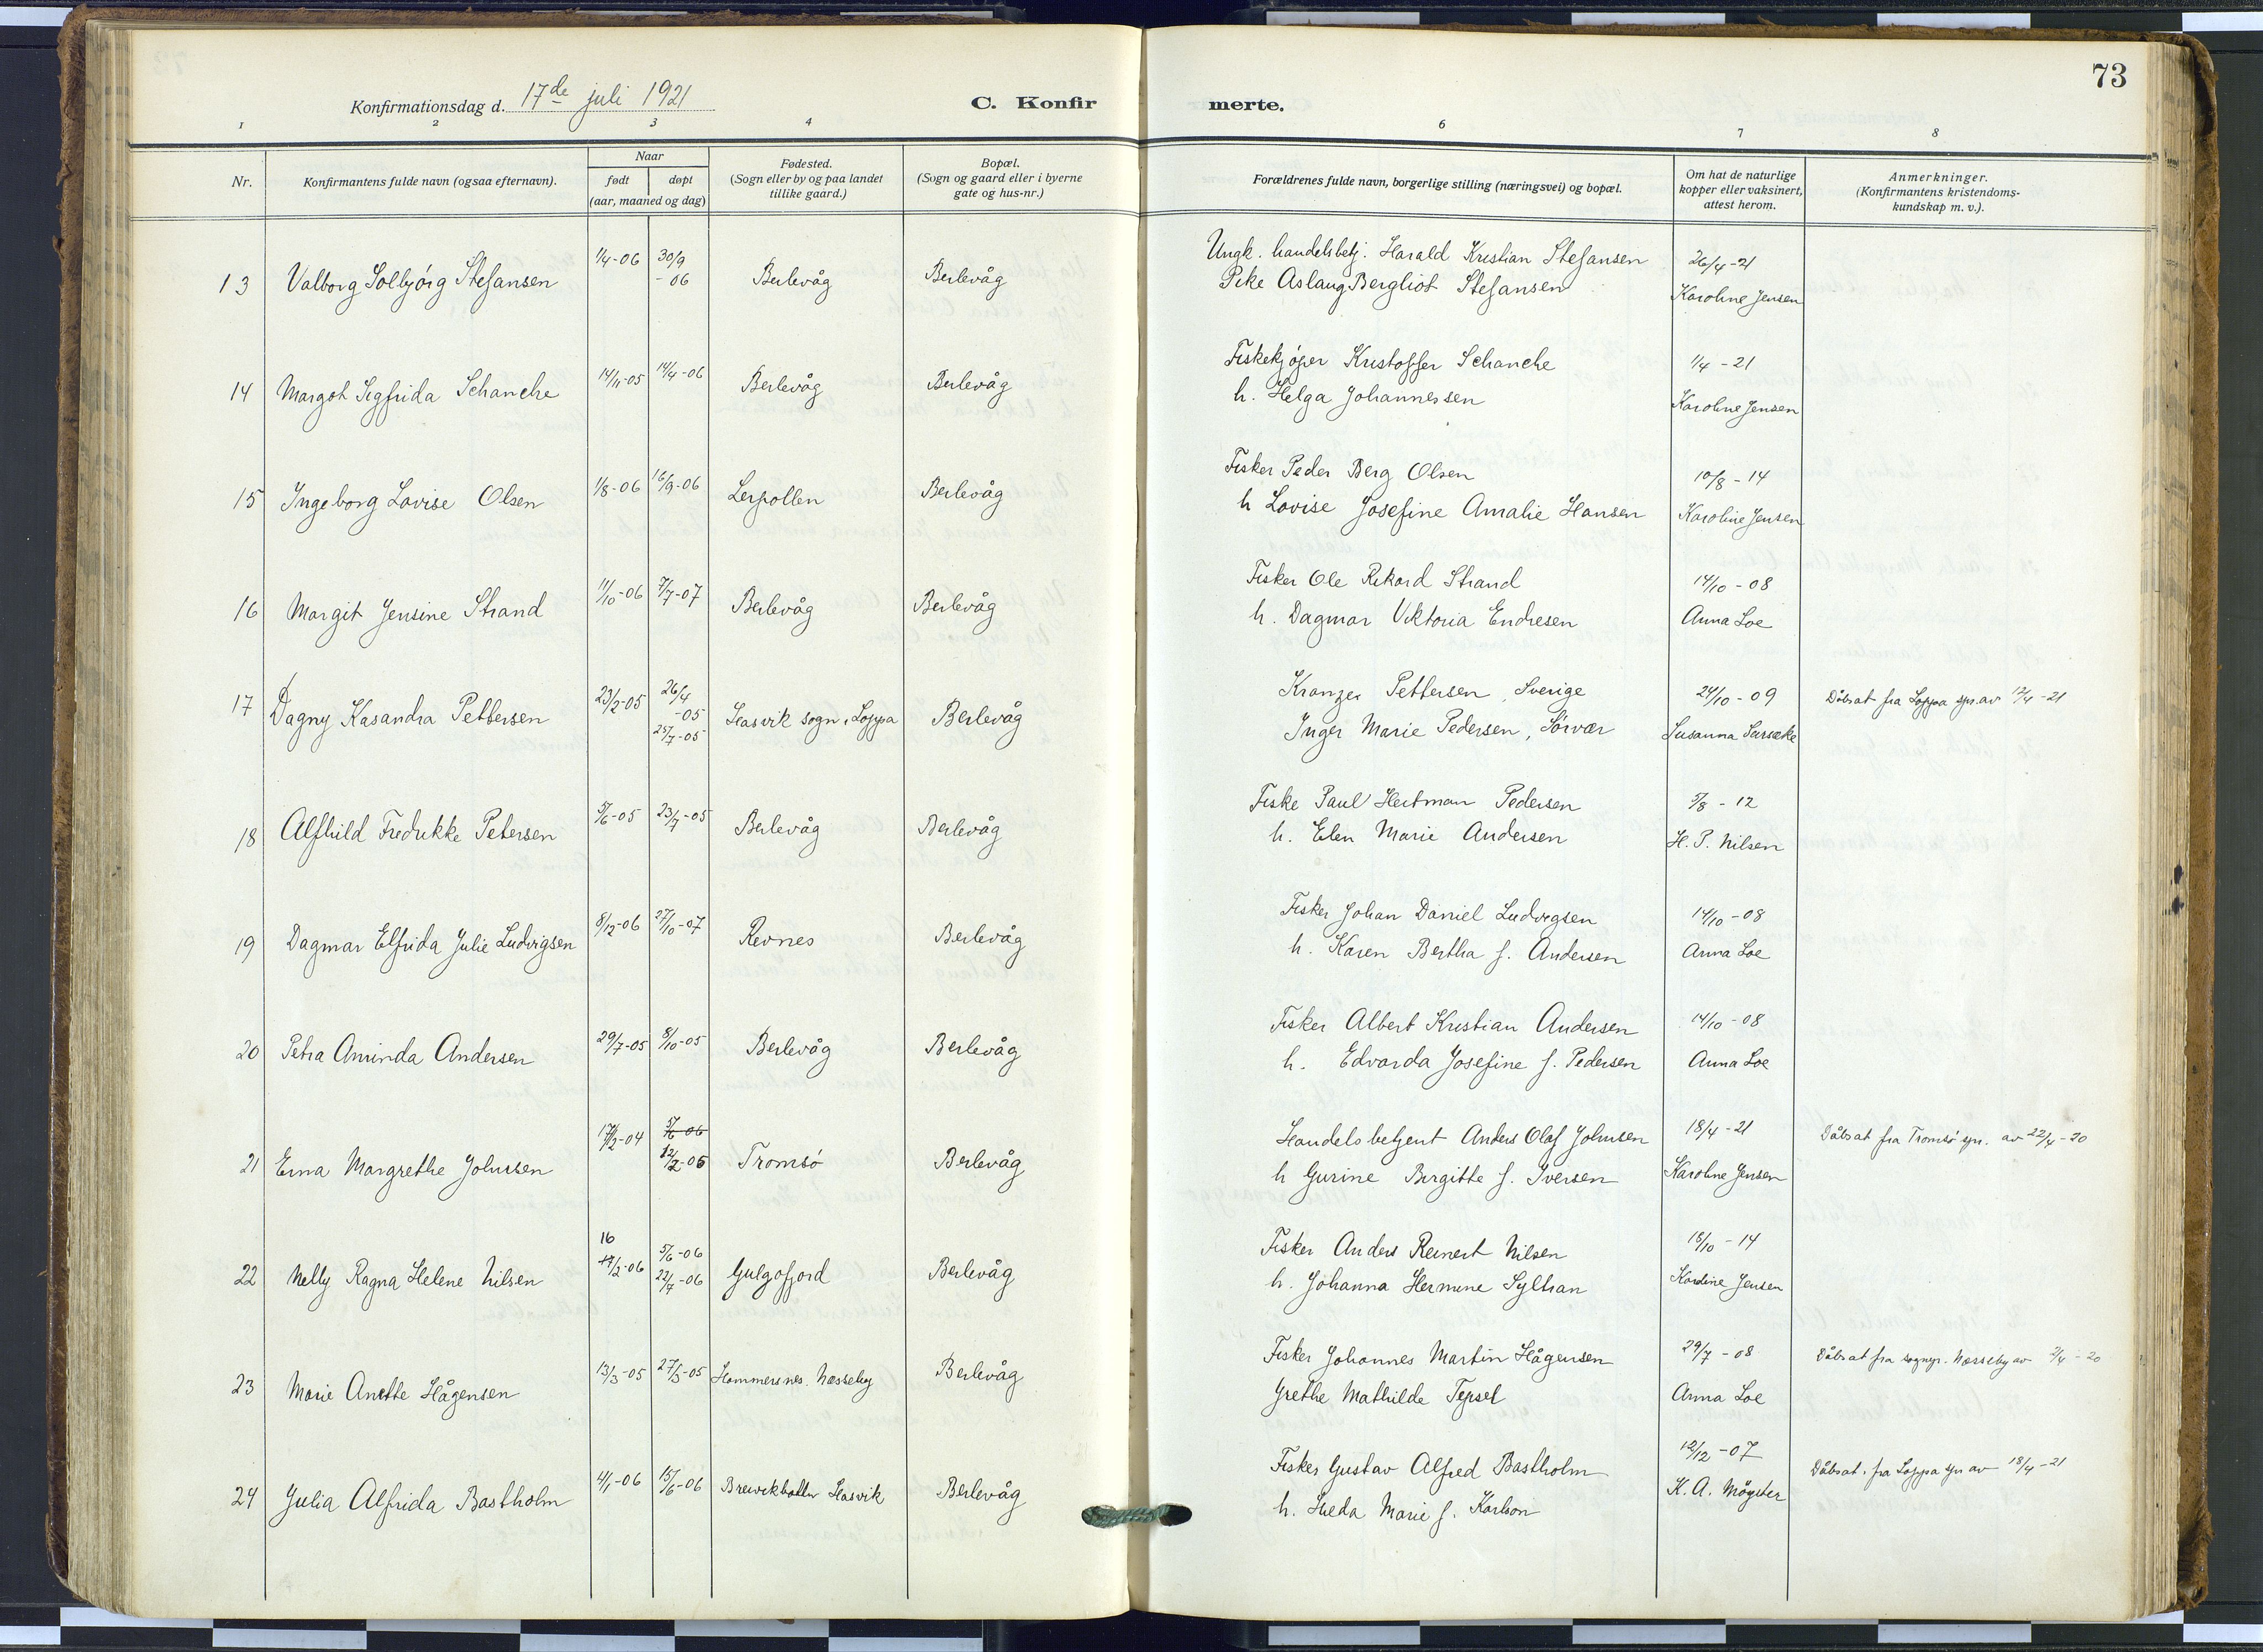 73
Konfirmationsdag d. 17de juli 1921
C. Konfirmerte.
1 2 3 4 6 7 8
Nr.
Konfirmantens fulde navn (ogsaa efternavn).
Naar
født døpt
(aar, maaned og dag)
Fødested.
(Sogn eller by og paa landet
tillike gaard.)
Bopæl.
(Sogn og gaard eller i byerne
gate og hus-nr.)
Forældrenes fulde navn, borgerlige stilling (næringsvei) og bopæl.
Om hat de naturlige
kopper eller vaksinert,
attest herom.
Anmerkninger.
(Konfirmantens kristendoms-
kundskap m. v.).
13 Valborg Solbjörg Stefansen 1/4-06 30/9 -06 Berlevåg Berlevåg
Ungk. handelsbetj. Harald Kristian Stefansen 26/4-21
Pike Aslaug Bergliot Stefansen Karoline Jensen
14 Margot Sigfrida Schanche 14/11-05 14/4-06 Berlevåg Berlevåg
Fiskekjøper Kristoffer Schanche 1/4-21
h. Helga Johannessen Karoline Jensen
15 Ingeborg Lovise Olsen 1/8-06 16/9-06 Lerpollen Berlevåg
Fisker Peder Berg Olsen 10/8-14
h Lovise Josefine Amalie Hansen Karoline Jensen
16 Margit Jensine Strand 11/10-06 7/7-07 Berlevåg Berlevåg
Fisker Ole Rikard Strand 14/10-08
h. Dagmar Viktoria Endresen Anna Loe
17 Dagny Kasandra Pettersen 23/2-05 26/4 -05 25/7-05 Hasvik sogn i Loppa Berlevåg
Pettersen, Sverige 24/10-09 Dåbsat fra Loppa spr. av 12/4-21
Inger Marie Pedersen, Sörvær Susanna
18 Alfhild Fredrikke Petersen 5/6-05 23/7-05 Berlevåg Berlevåg
Fiske Paul Hertman Pedersen 5/8-12
h. Elen Marie Andersen H. P. Nilsen
19 Dagmar Elfrida Julie Ludvigsen 8/12-06 27/10-07 Revnes Berlevåg
Fisker Johan Daniel Ludvigsen 14/10-08
h. Karen Bertha f. Andersen Anna Loe
20 Petra Aminda Andersen 29/7-05 8/10-05 Berlevåg Berlevåg
Fisker Albert Kristian Andersen 14/10-08
h. Edvarda Josefine f. Pedersen Anna Loe
21 Erna Margrethe Johnsen 17/12-04 5/6-06 12/2-05 Tromsö Berlevåg
Handelsbetjent Anders Olaf Johnsen 18/4-21 Dåbsat fra Tromsö spr. av 22/4-20
h Gurine Birgitte f. Iversen Karoline Jensen
22 Nelly Ragna Helene Nilsen 16 17/2-06 5/6-06 22/4-06 Gulgofjord Berlevåg
Fisker Anders Reinert Nilsen 18/10-14
h. Johanna Hermine Syltran Karoline Jensen
23 Marie Anette Hågensen 13/3-05 27/5-05 Hammersnes. Næsseby Berlevåg
Fisker Johannes Martin Hågensen 29/7-08 Dåbsat fra sognepr. Næsseby av 2/4-20
Grethe Mathilde Anna Loe
24 Julia Alfrida Bastholm 4/1-06 15/6-06 Breivikbotten Hasvik Berlevåg
Fisker Gustav Alfred Bastholm 12/12-07 Dåbsat. fra Loppa spr av 18/4-21
h. Hilda Marie f. Karlson K. A. Møyster